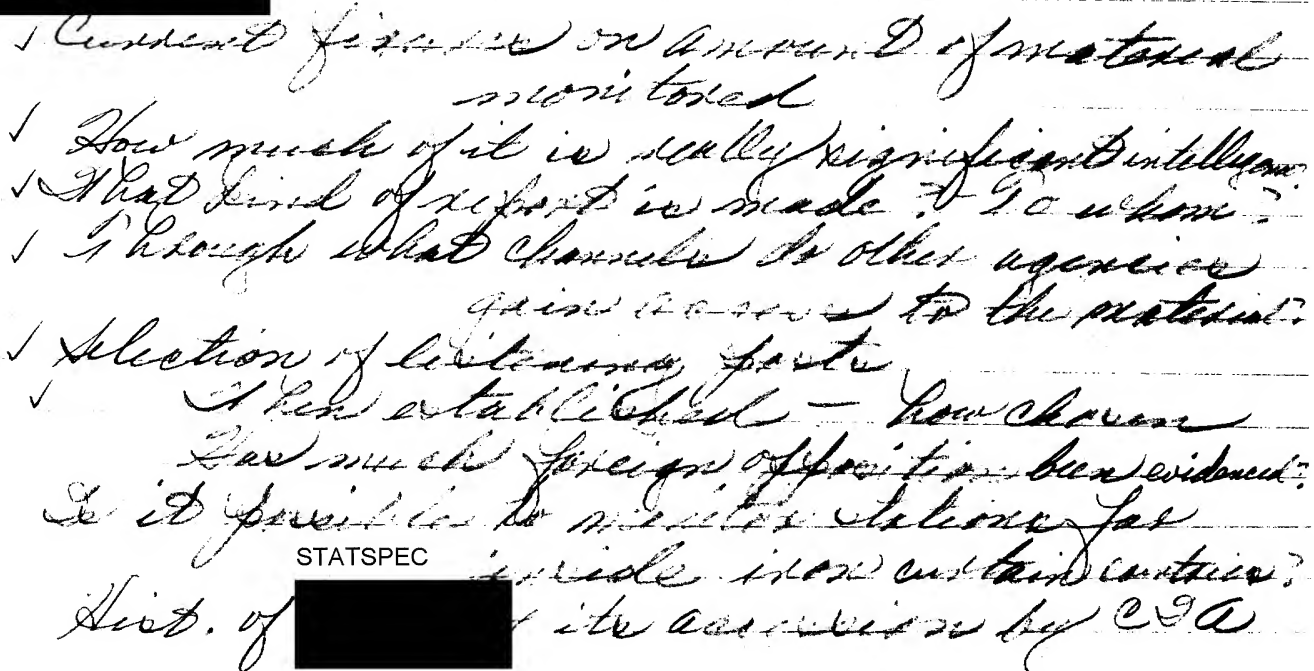 ✓ Current figures on amount of material
monitored
✓ How much of it is really significant intelligence
✓ What kind of report is made? To whom?
✓ Through what channels do other agencies
gain access to the material?
✓ Selection of listening posts
✓ When established – how chosen
Has much foreign opposition been evidenced?
Is it possible to monitor stations far
STATSPEC
inside iron curtain countries?
Hist. of its accession by CIA